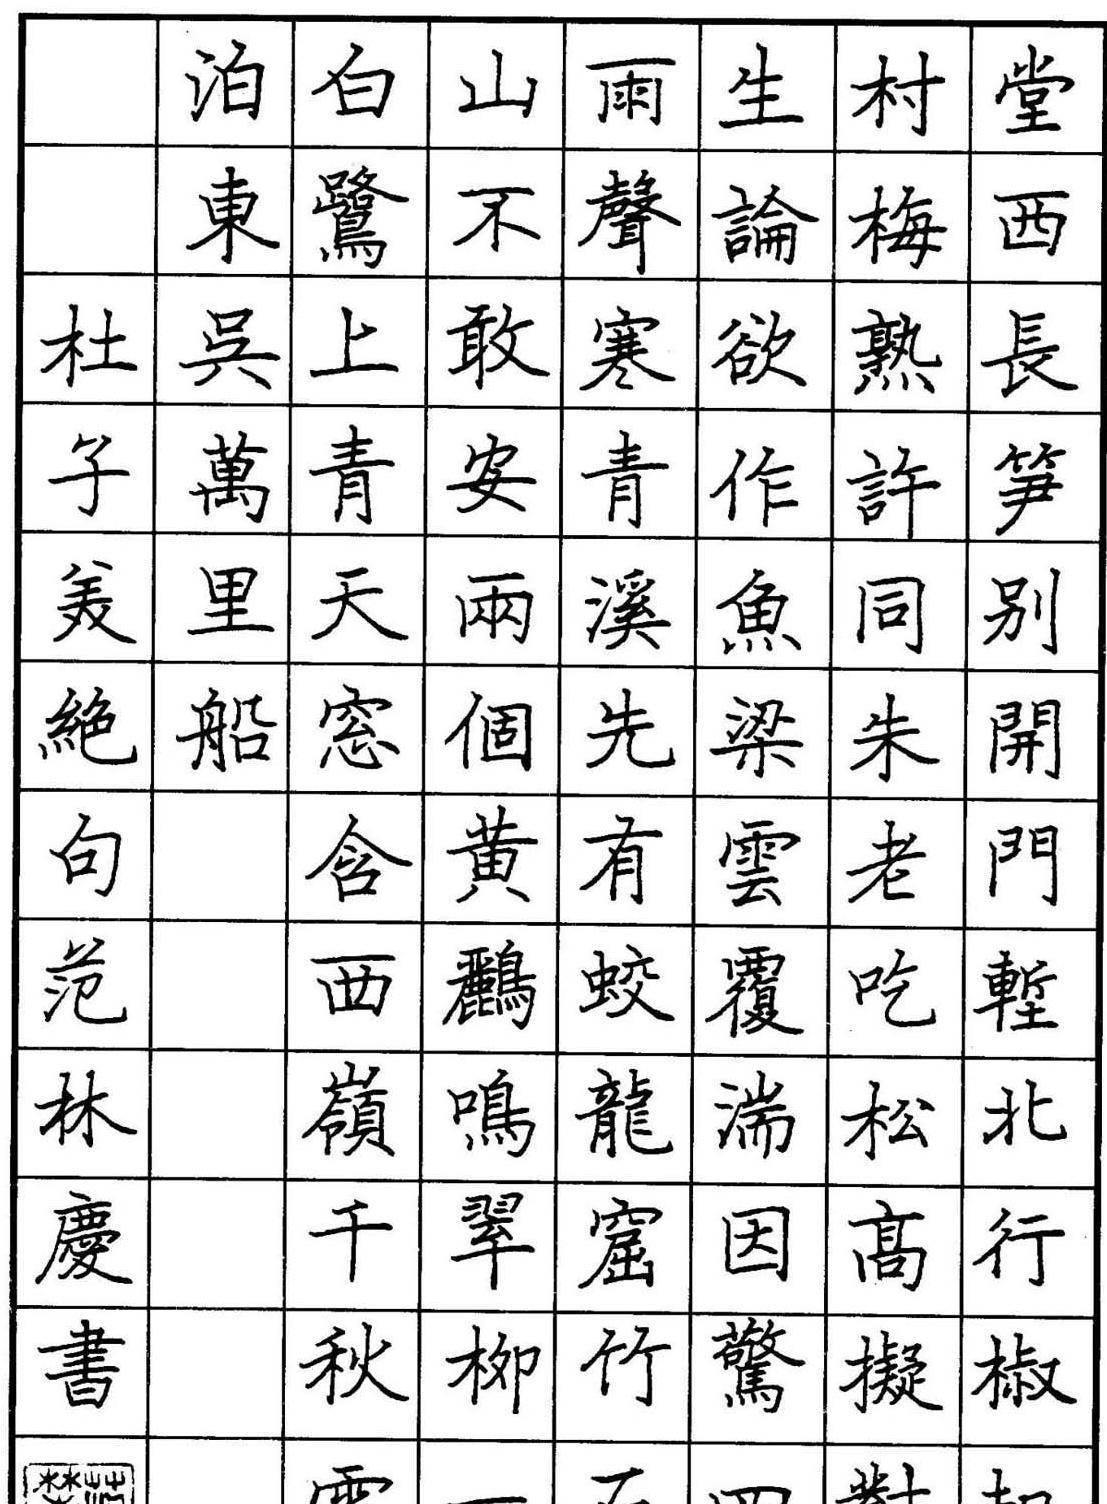 堂西長笋別開門塹北行椒
村梅熟許同朱老吃松高擬對
生論欲作魚梁雲覆湍因驚四
雨聲寒青溪先有蛟龍窟竹
山不敢安兩個黄鸝鳴翠柳一
白鷺上青天窓含西嶺千秋
泊東吳萬里船
杜子美絶句范林慶書